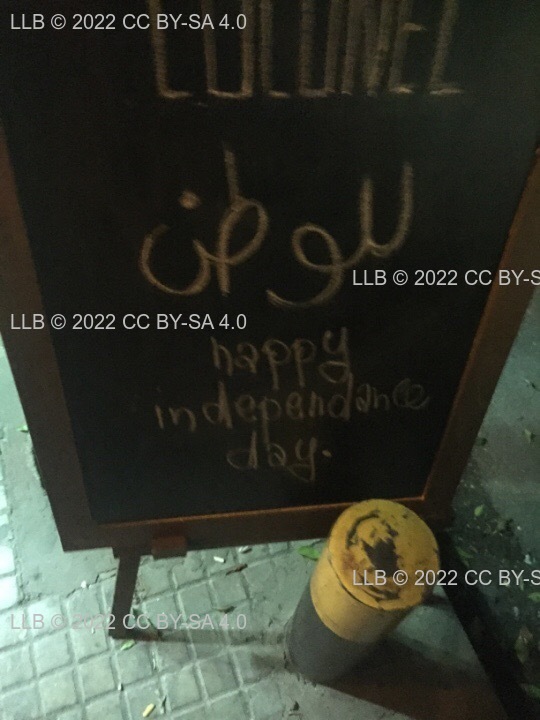 LLB © 2022 CC BY-SA 4.0
COLONEL
للوطن
LLB © 2022 CC BY-S
LLB © 2022 CC BY-SA 4.0
happy
independance
day.
LLB © 2022 CC BY-S
LLB © 2022 CC BY-SA 4.0